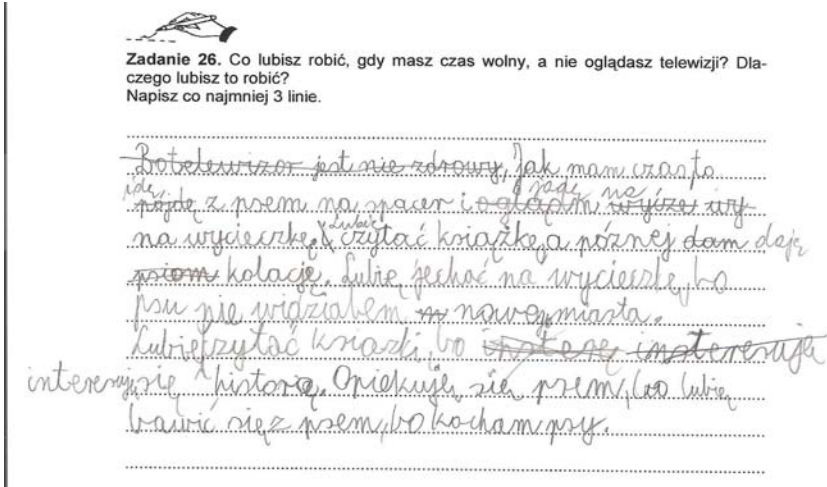 Zadanie 26. Co lubisz robić, gdy masz czas wolny, a nie oglądasz telewizji? Dla-
czego lubisz to robić?
Napisz co najmniej 3 linie.
Bo telewizor jest nie zdrowy, Jak mam czas to
idę pójdę z psem na spacer i oglądm jadę na wy
na wycieczkę. Lubię czytać książkę, a późnej dam daję
psiom kolację. Lubię jechać na wycieczkę, bo
nie widziałem nowego miasta.
Lubię czytać ksiazki, bo interesuje
interesuję się historią. Opiekuję się psem, bo lubię
bawić się z psem, bo kocham psy.